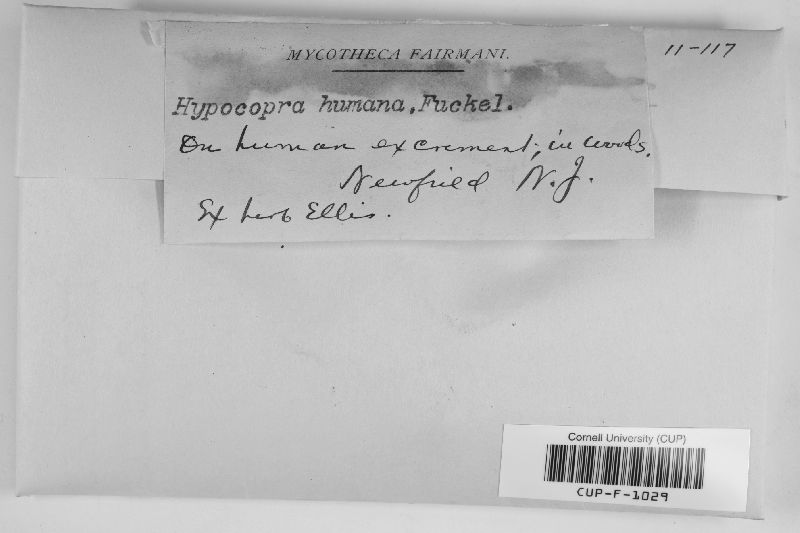 MYCOTHECA FAIRMANI.
11-117
Hypocopra humana, Fuckel.
On human excrement, in woods.
Newfield N.J.
Ex herb Ellis.
Cornell University (CUP)
CUP-F-1029